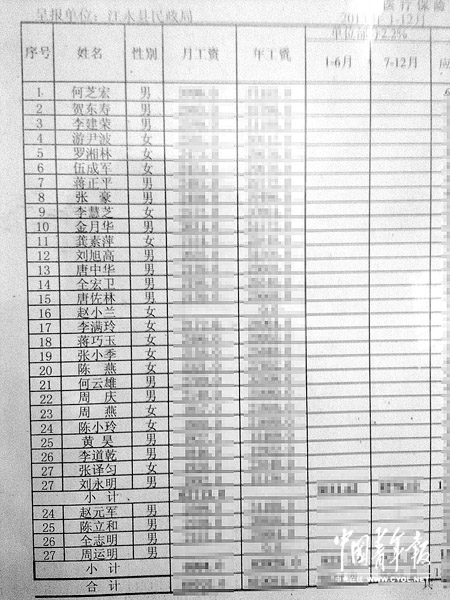 呈报单位：江永县民政局
医疗保险
1-12月
2.2%
序号 姓名 性别 月工资 年工资 1-6月 7-12月
1 何芝宏 男
2 贺东寿 男
3 李建荣 男
4 游尹波 女
5 罗湘林 女
6 伍成军 女
7 蒋正平 男
8 张豪 男
9 李慧芝 女
10 金月华 男
11 龚素萍 女
12 刘旭高 男
13 唐中华 男
14 全宏卫 男
15 唐佐林 男
16 赵小兰 女
17 李满玲 女
18 蒋巧玉 女
19 张小季 女
20 陈燕 女
21 何云雄 男
22 周庆 男
23 周燕 女
24 陈小玲 女
25 黄昊 男
26 李道乾 男
27 张译匀 女
27 刘永明 男
小计
24 赵元军 男
25 陈立和 男
26 全志明 男
27 周运明 男
小计
合计
中国青年报
中青在线 WWW.CYOL.NET